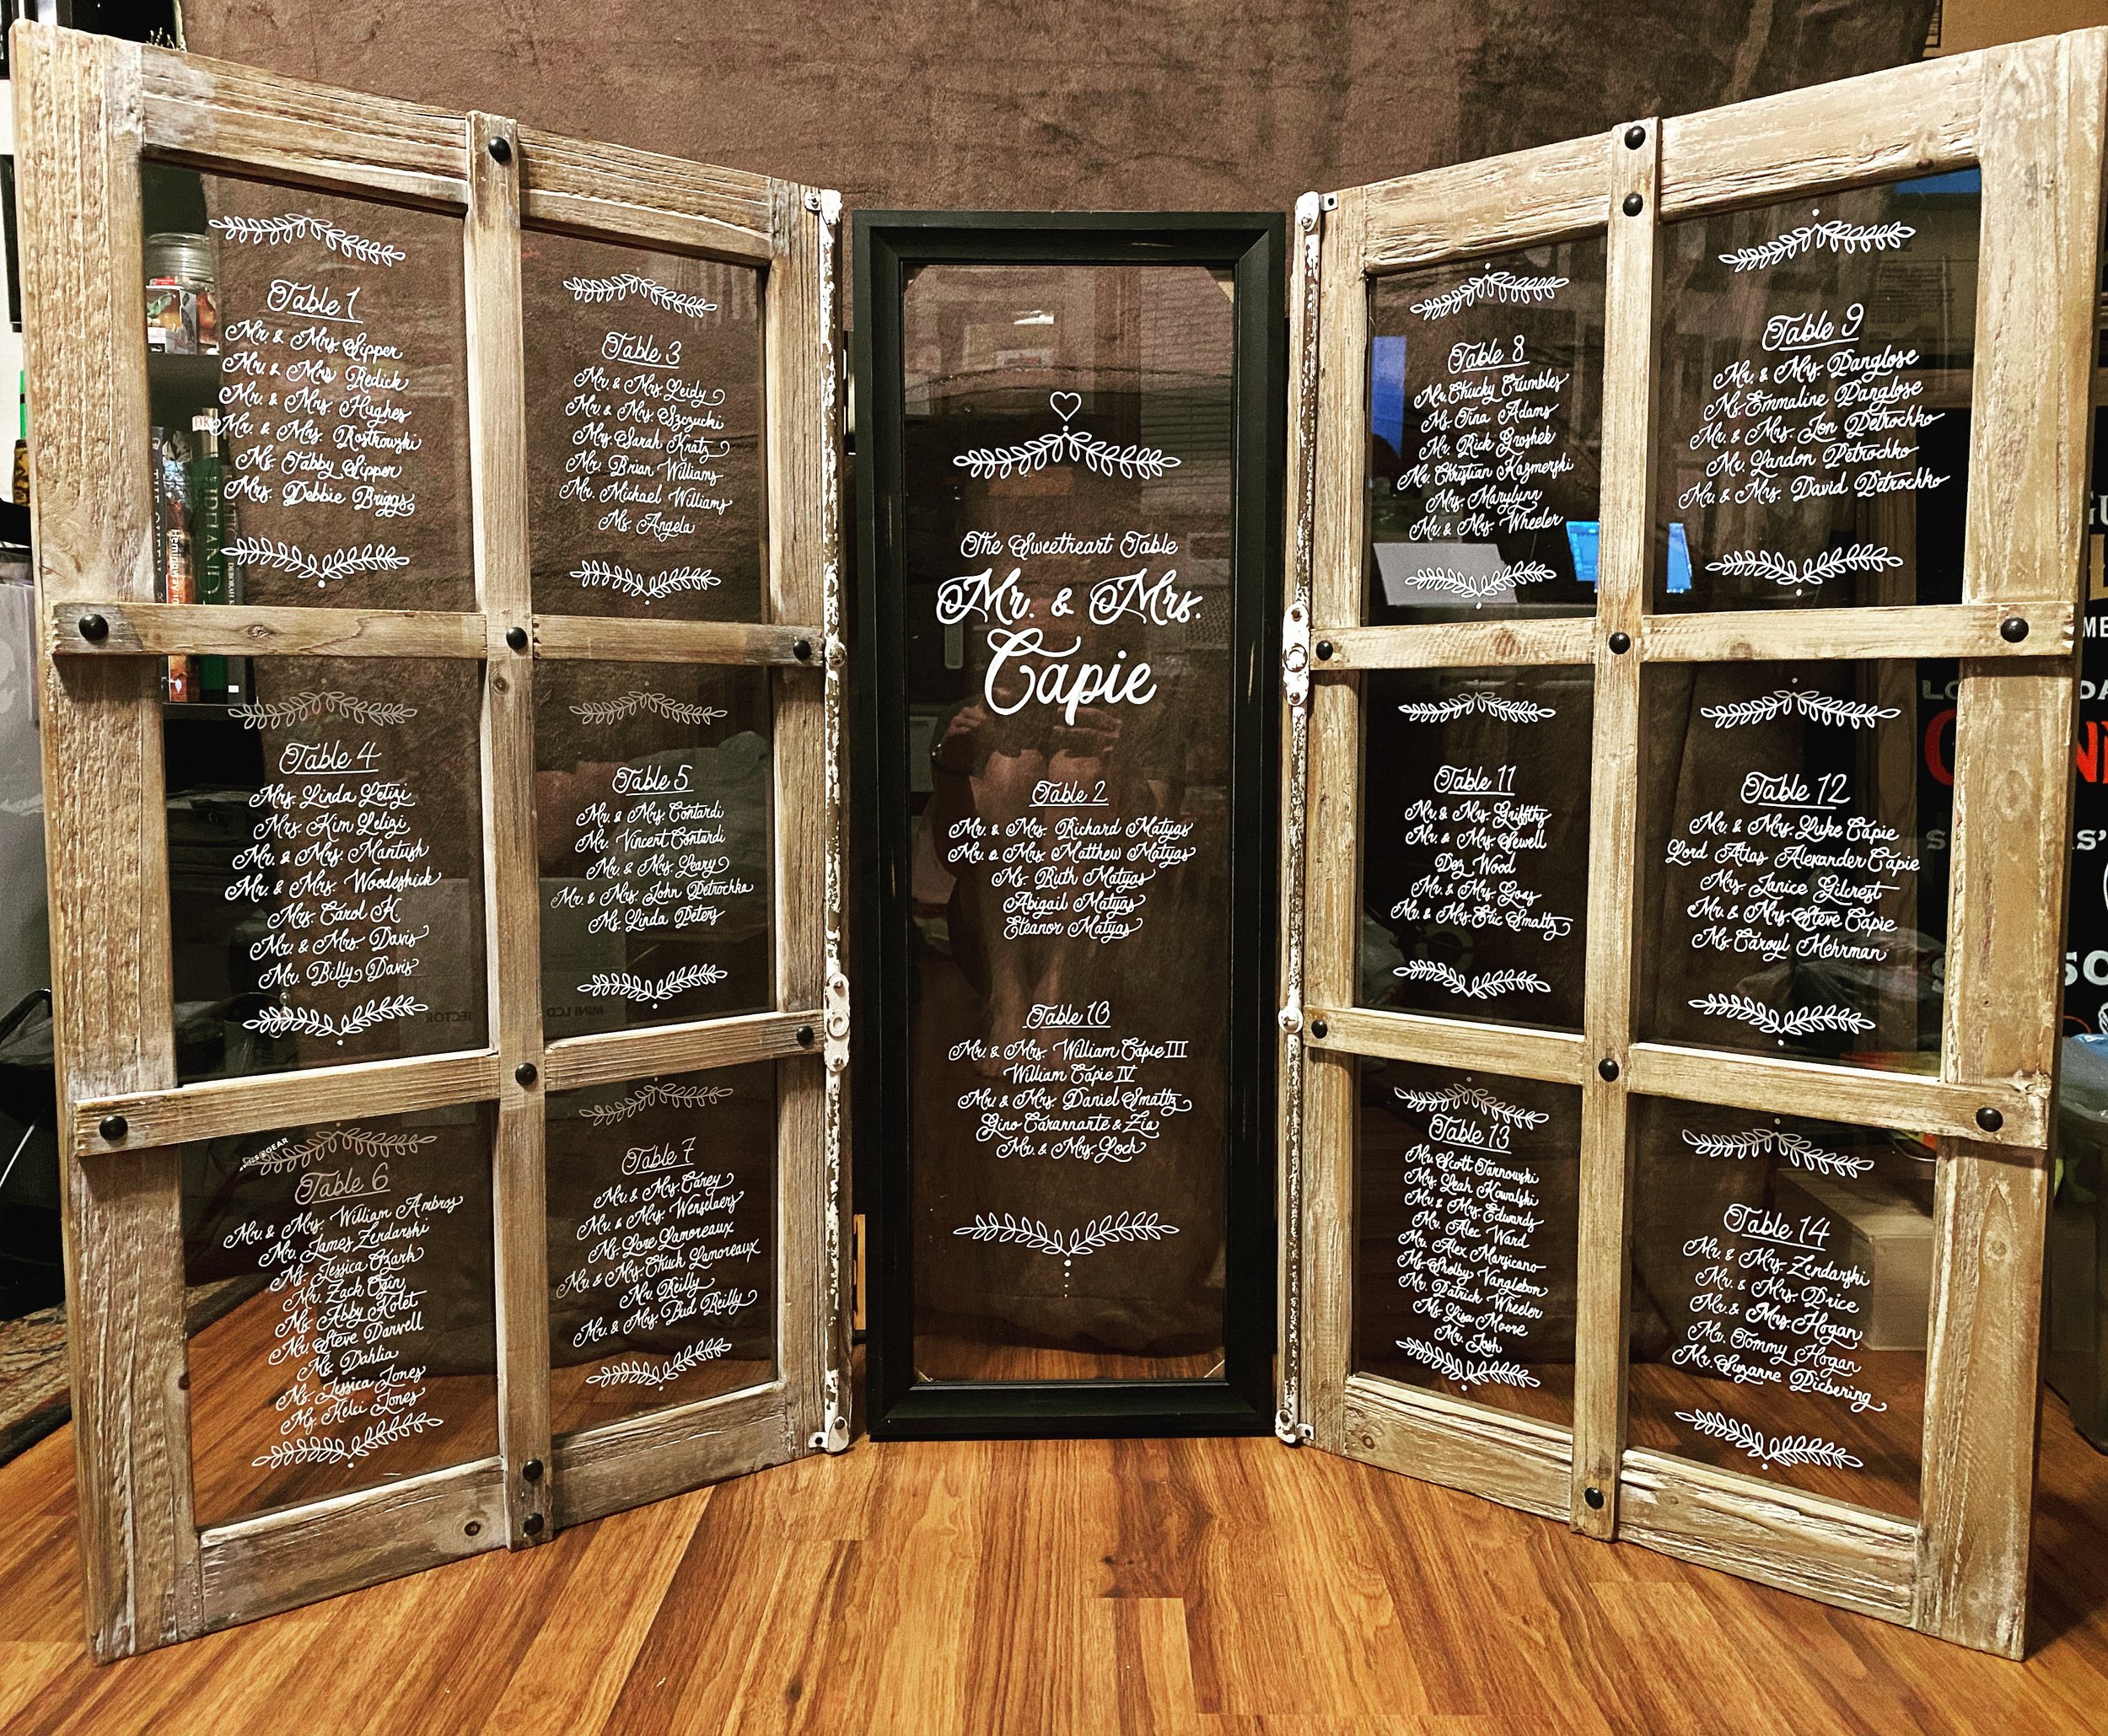 Table 1
Mr. & Mrs. Sipper
Mr. & Mrs. Redick
Mr. & Mrs. Hughes
Mr. & Mrs. Rostkowski
Ms. Tabby Sipper
Mrs. Debbie Briggs
Table 3
Mr. & Mrs. Leidy
Mr. & Mrs. Szczucki
Mrs. Sarah Kratz
Mr. Brian Williams
Mr. Michael Williams
Ms. Angela
Table 4
Mrs. Linda Letizi
Mrs. Kim Letizi
Mr. & Mrs. Mantush
Mr. & Mrs. Woodeshick
Mrs. Carol K.
Mr. & Mrs. Davis
Mr. Billy Davis
Table 5
Mr. & Mrs. Contardi
Mr. Vincent Contardi
Mr. & Mrs. Leary
Mr. & Mrs. John Petrochko
Ms. Linda Peters
Table 6
Mr. & Mrs. William Ambros
Mr. James Zendarski
Ms. Jessica Ozark
Mr. Zack Ozin
Ms. Abby Kolet
Mr. Steve Darvell
Ms. Dahlia
Ms. Jessica Jones
Ms. Kelsi Jones
Table 7
Mr. & Mrs. Carey
Mr. & Mrs. Wenslaers
Ms. Lore Lamoreaux
Mr. & Mrs. Chuck Lamoreaux
Mr. Reilly
Mr. & Mrs. Bud Reilly
The Sweetheart Table
Mr. & Mrs.
Capie
Table 2
Mr. & Mrs. Richard Matyas
Mr. & Mrs. Matthew Matyas
Ms. Ruth Matyas
Abigail Matyas
Eleanor Matyas
Table 10
Mr. & Mrs. William Capie III
William Capie IV
Mr. & Mrs. Daniel Smaltz
Gino Carannante & Zia
Mr. & Mrs. Loch
Table 8
Mr. Chucky Crumbles
Ms. Tina Adams
Mr. Rick Groshek
Mr. Christian Kazmerski
Mrs. Marylynn
Mr. & Mrs. Wheeler
Table 9
Mr. & Mrs. Panglose
Ms. Emmaline Panglose
Mr. & Mrs. Jon Petrochko
Mr. Landon Petrochko
Mr. & Mrs. David Petrochko
Table 11
Mr. & Mrs. Griffths
Mr. & Mrs. Sewell
Dez Wood
Mr. & Mrs. Goas
Mr. & Mrs. Eric Smaltz
Table 12
Mr. & Mrs. Luke Capie
Lord Atlas Alexander Capie
Mrs. Janice Gilcrest
Mr. & Mrs. Steve Capie
Ms. Caroyl Mehrman
Table 13
Mr. Scott Tarnowski
Mrs. Leah Kowalski
Mr. & Mrs. Edwards
Mr. Alec Ward
Mr. Alex Marsicano
Ms. Shelby Vanglebon
Mr. Patrick Wheeler
Ms. Lisa Moore
Mr. Josh
Table 14
Mr. & Mrs. Zendarski
Mr. & Mrs. Price
Mr. & Mrs. Hogan
Mr. Tommy Hogan
Mr. Suzanne Pickering